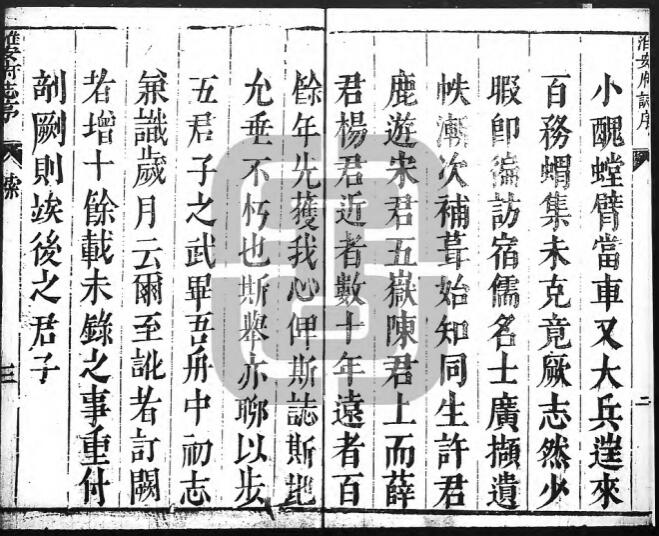 淮安府誌序
二
小醜螳臂當車又大兵遝來
百務蝟集未克竟厥志然少
暇卽徧訪宿儒名士廣擷遺
帙漸次補葺始知同生許君
鹿遊宋君五嶽陳君上而薛
君楊君近者數十年遠者百
餘年先獲我心俾斯誌斯地
允垂不朽也斯舉亦聊以步
五君子之武畢吾舟中初志
兼識歲月云爾至訛者訂闕
者增十餘載未錄之事重付
剞劂則竢後之君子
淮安府志序
三